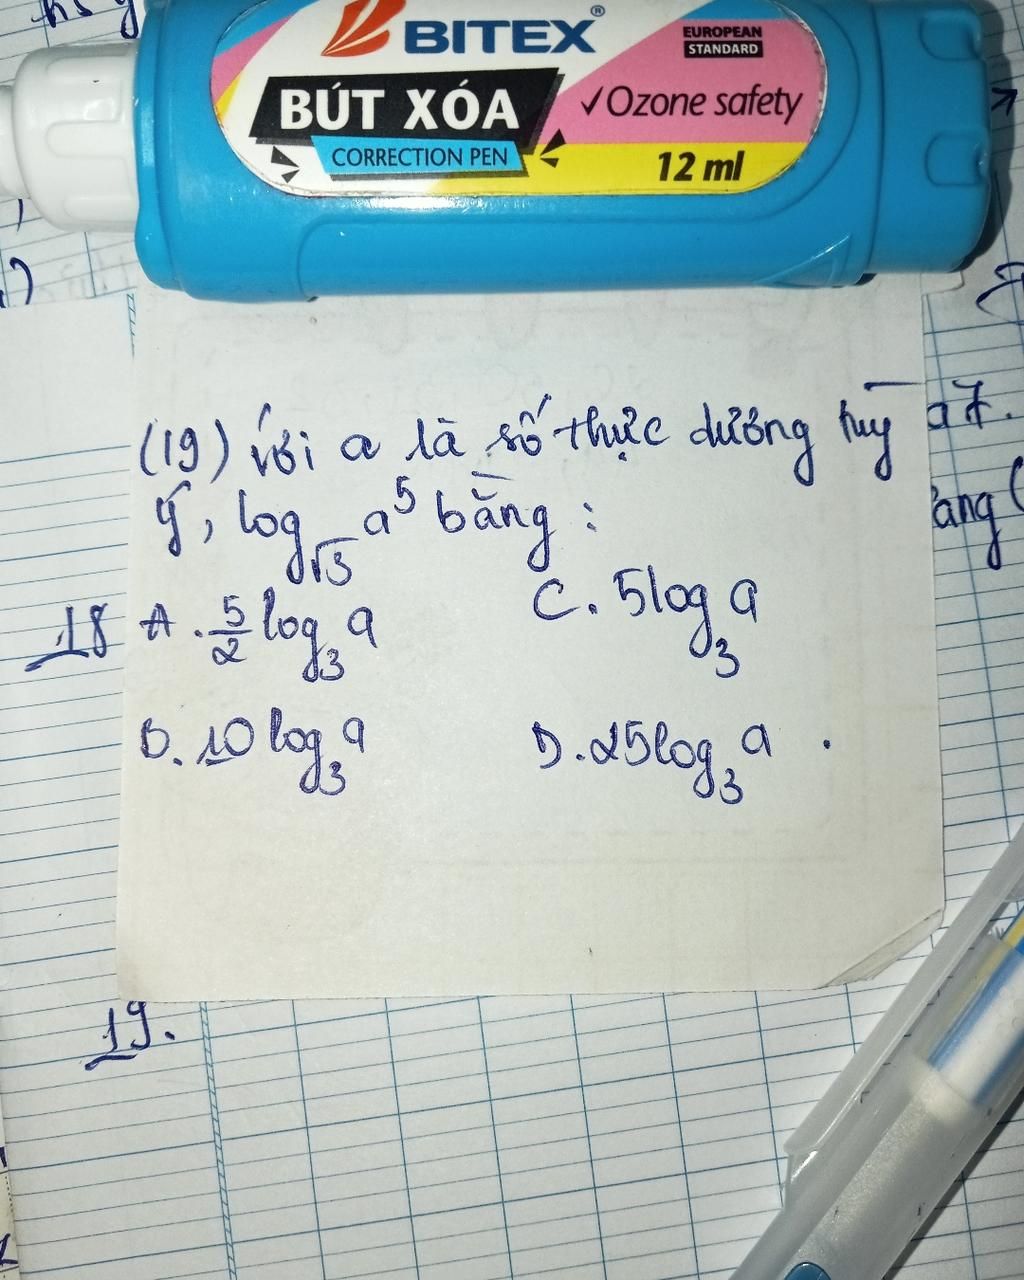 BITEX®
EUROPEAN
STANDARD
BÚT XÓA
✓Ozone safety
CORRECTION PEN
12 ml
(19) Với a là số thực dương tuỳ
ý, log_√3 a^5 bằng :
18
A. 5/2 log_3 a
C. 5log_3 a
B. 10 log_3 a
D. 25log_3 a .
19.
a7.